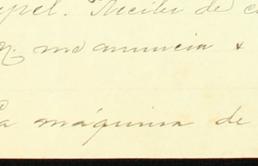 pel. Recibi de
me anuncia
a máquina de